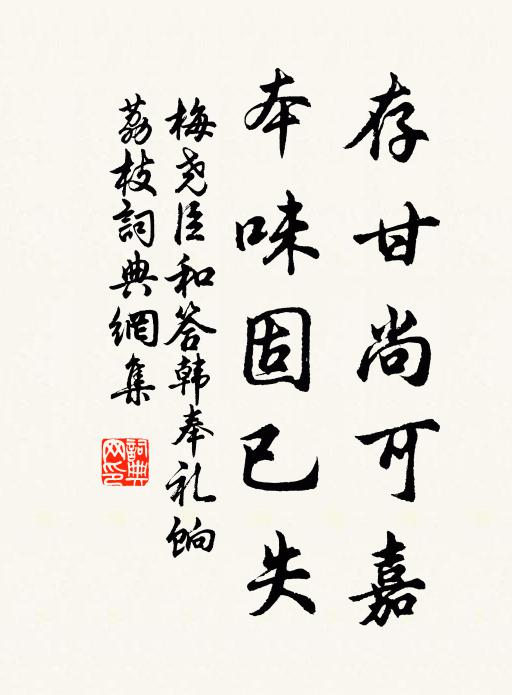 存甘尚可嘉
本味固已失
梅尧臣和答韩奉礼饷
荔枝詞典網集
詞典
网印